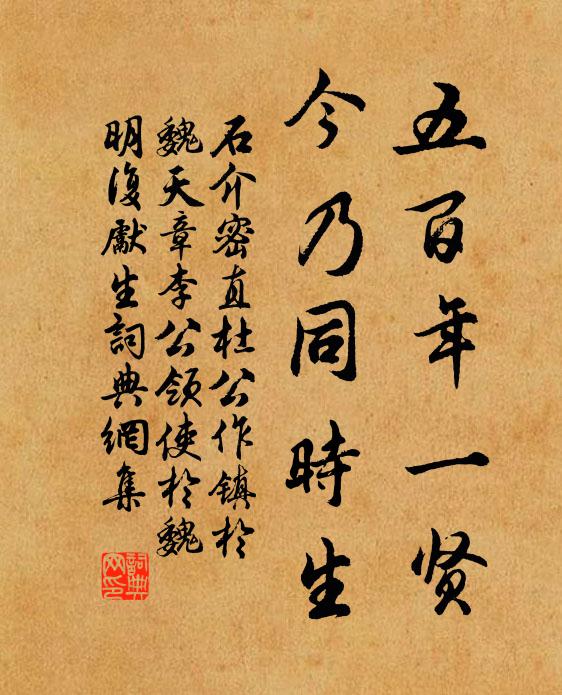 五百年一贤
今乃同時生
石介密直杜公作镇於
魏天章李公领使於魏
明復獻生詞典網集
詞典
网印